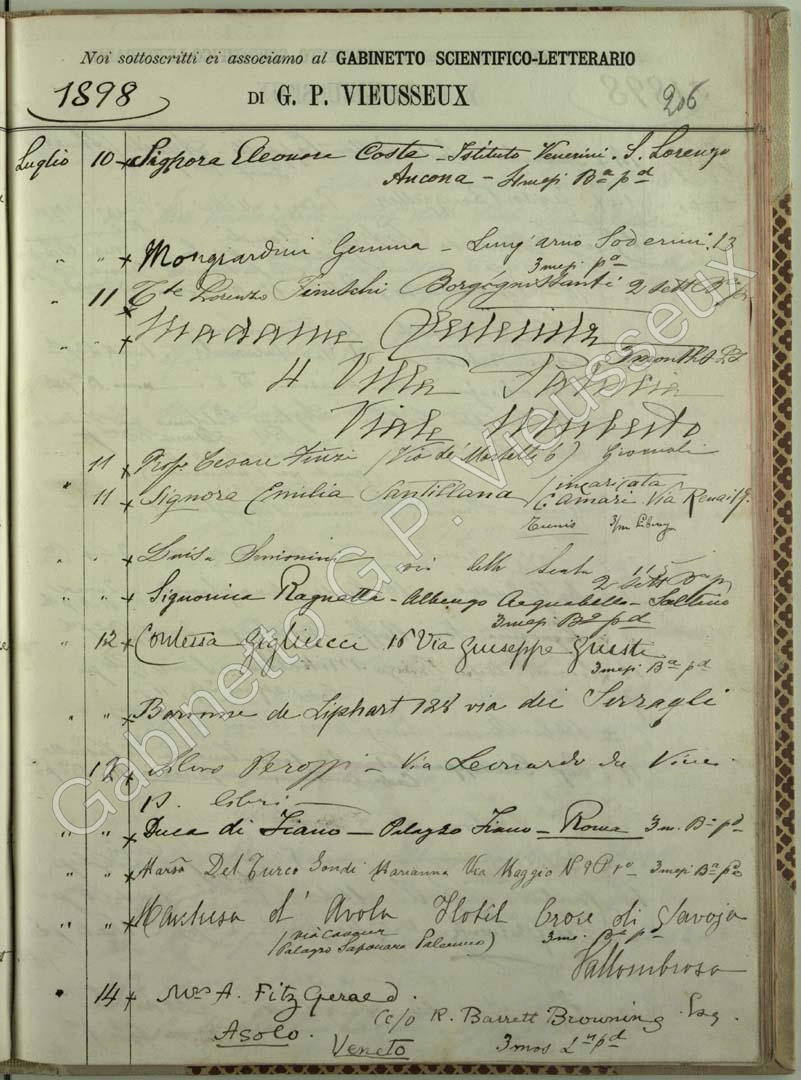 Noi sottoscritti ci associamo al GABINETTO SCIENTIFICO-LETTERARIO
1898 DI G. P. VIEUSSEUX 206
Luglio 10 x Signora Eleonora Costa - Istituto Venerini. S. Lorenzo
Ancona - 4 mesi Bª pd
" " x Mongiardini Gemma - Lung'arno Soderini. 13
3 mesi pª
" 11 x Tte Lorenzo Fineschi Borgognissanti 2 sett
" " x Madame
3 months
4 Villa
Viale Umberto
11 x Profr Cesare Finzi (Via de' Martelli 6) Giornali
11 x Signora Emilia Santillana / incaricata
C. Amari Via Renai 17.
Tunis 3/m
" " x Luisa via della Scala 115
2 sett
" " x Signorina Ragnetta - Albergo Acquabella - Saltino
3 mesi Bª pd
" 12 x Contessa Gigliucci 16 Via Giuseppe Giusti
3 mesi Bª pd
" " x Barone de Liphart 128 via dei Serragli
12 x Peroggi - Via Leonardo da Vinci
libri
" " x Duca di Fiano - Palazzo Fiano - Roma 3 m. Bª pd
" " x Marsa Del Turco Gondi Marianna Via Maggio N 9 P 1º 3 mesi Bª pd
" " x Marchesa d'Avola Hotel Croce di Savoja
(via Cavour 3 me. Bª pd
Palazzo Saponara Palermo)
Vallombrosa
" 14 x Mrs A. Fitz Gerald.
c/o R. Barrett Browning. Esq.
Asolo.
Veneto 3 mos Ln pd
Gabinetto G P. Vieusseux